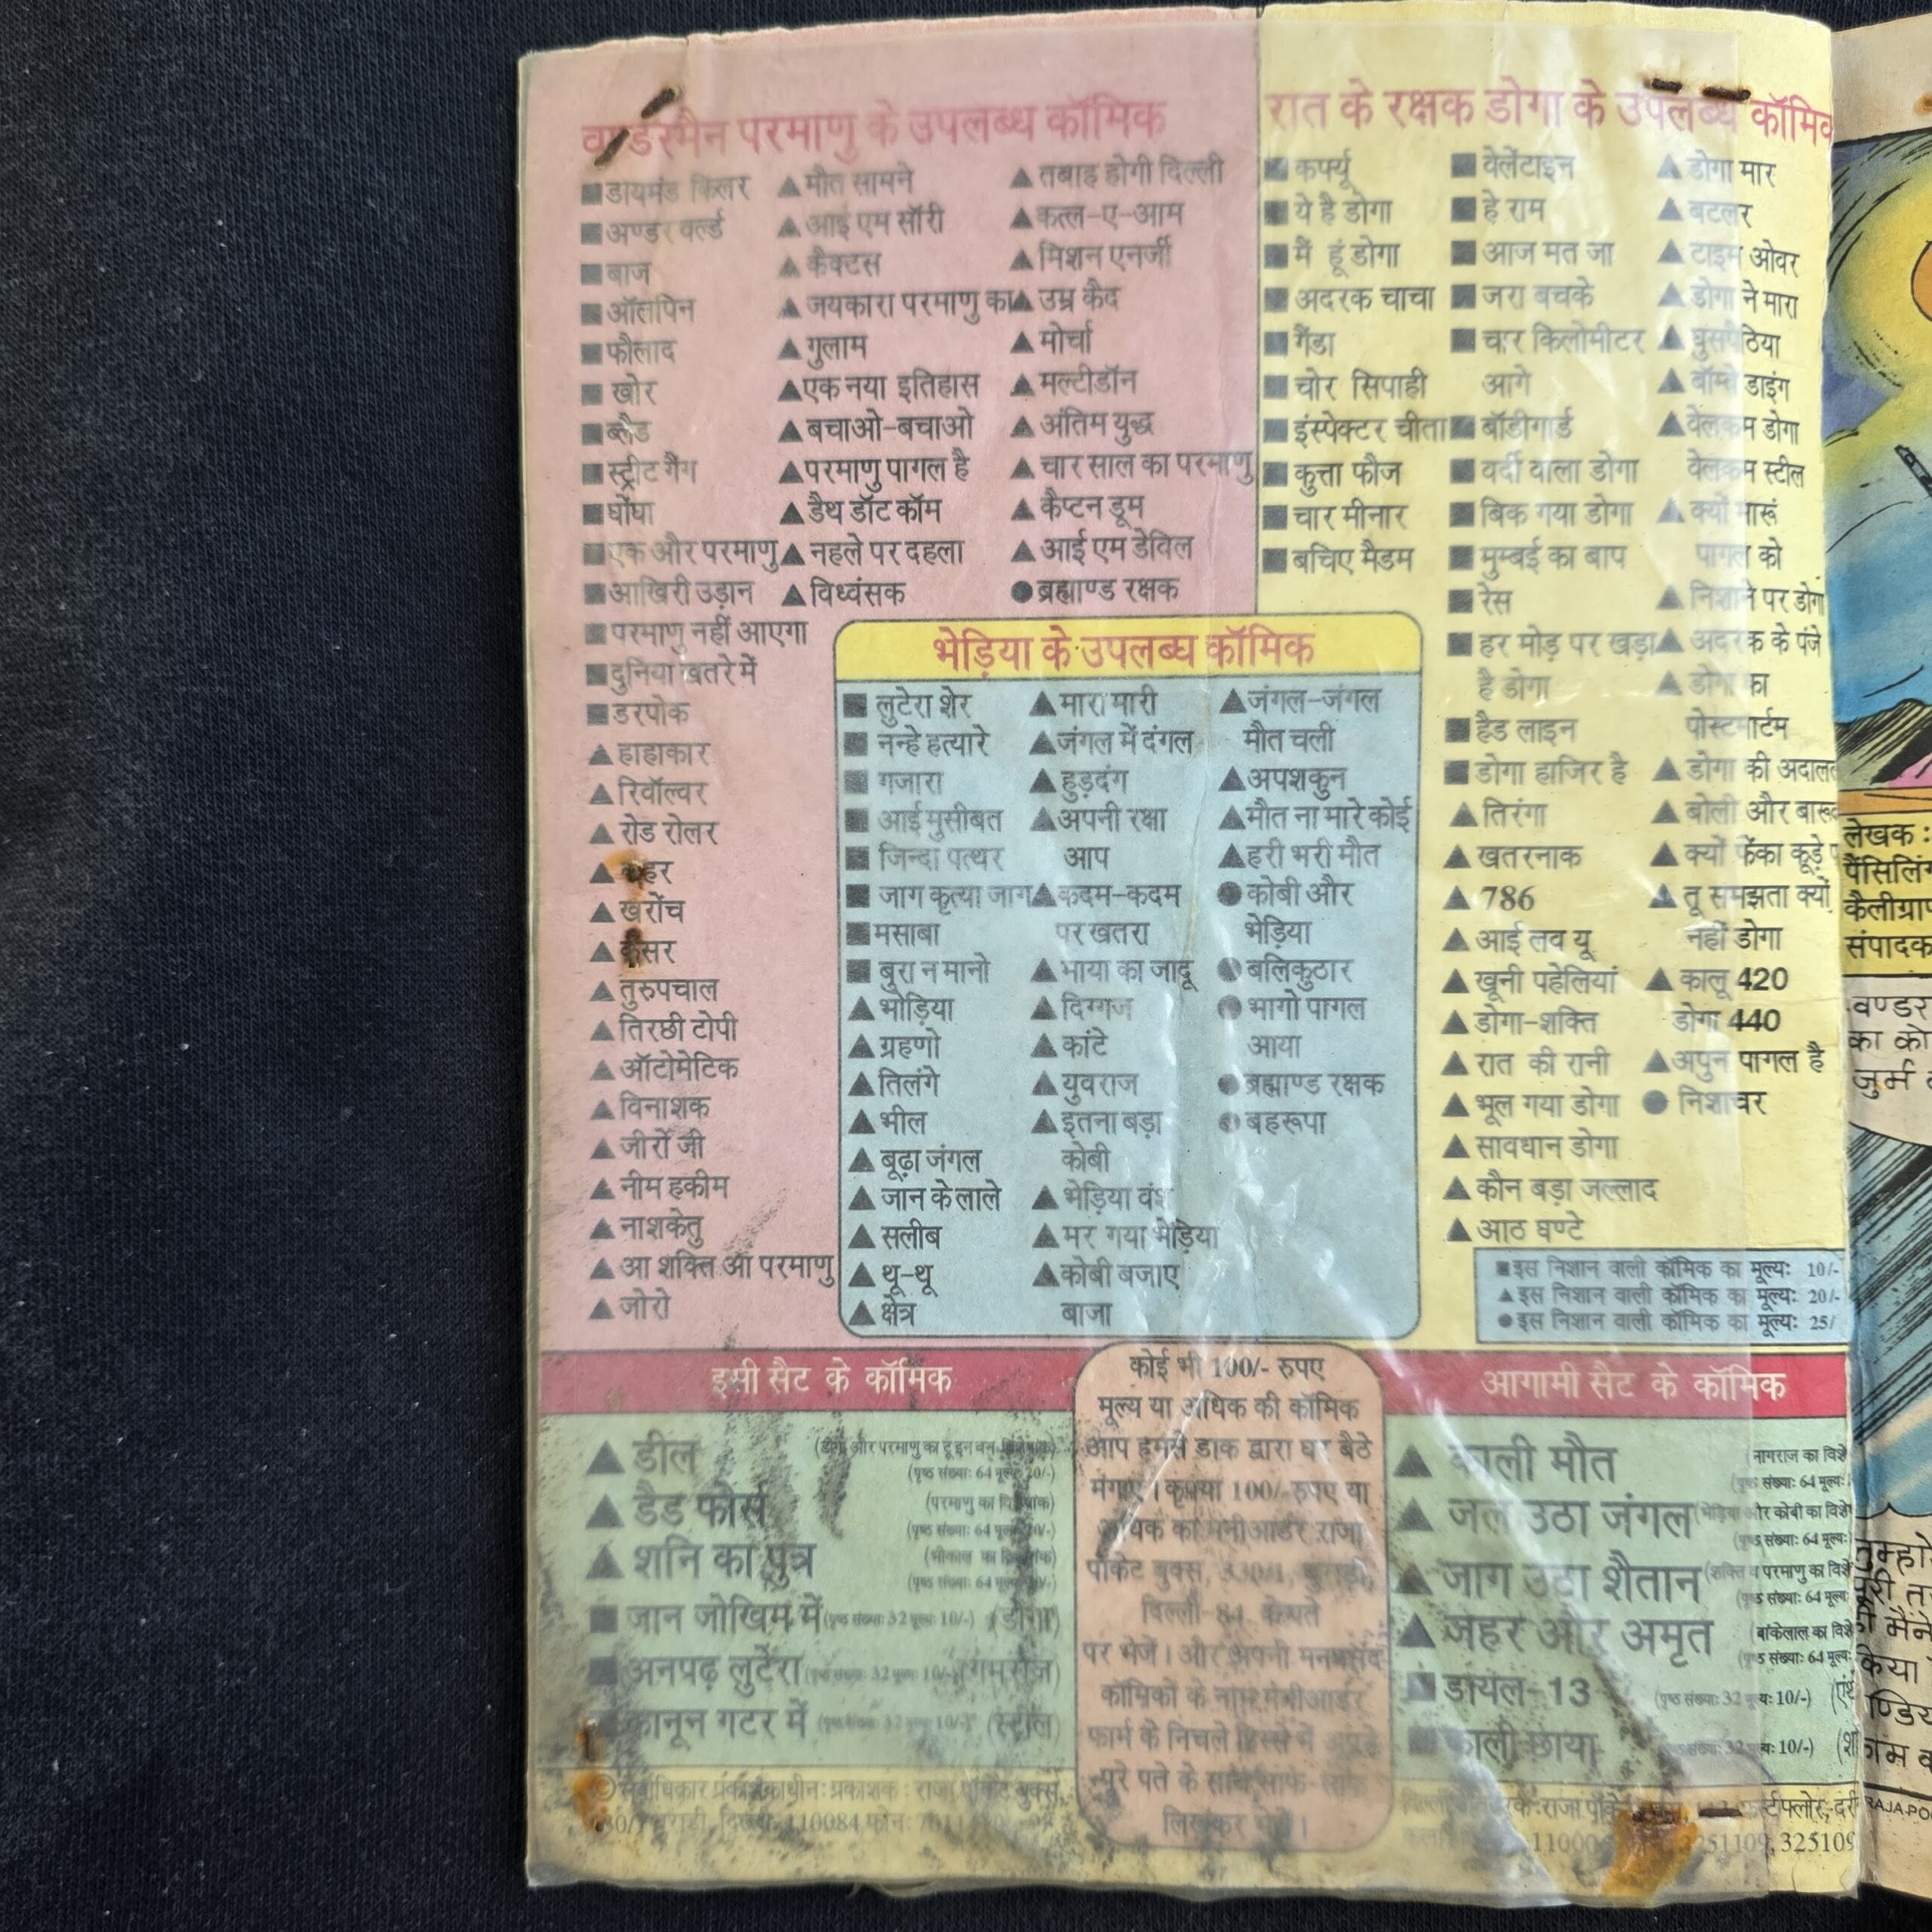 वण्डरमैन परमाणु के उपलब्ध कॉमिक
■ डायमंड किलर
■ अण्डर वर्ल्ड
■ बाज
■ ऑलपिन
■ फौलाद
■ खोर
■ ब्लैड
■ स्ट्रीट गैंग
■ घोंघा
■ एक और परमाणु
■ आखिरी उड़ान
■ परमाणु नहीं आएगा
■ दुनिया खतरे में
■ डरपोक
▲ हाहाकार
▲ रिवॉल्वर
▲ रोड रोलर
▲ कहर
▲ खरोंच
▲ कैंसर
▲ तुरुपचाल
▲ तिरछी टोपी
▲ ऑटोमेटिक
▲ विनाशक
▲ जीरो जी
▲ नीम हकीम
▲ नाशकेतु
▲ आ शक्ति आ परमाणु
▲ जोरो
▲ मौत सामने
▲ आई एम सॉरी
▲ कैक्टस
▲ जयकारा परमाणु का
▲ गुलाम
▲ एक नया इतिहास
▲ बचाओ-बचाओ
▲ परमाणु पागल है
▲ डैथ डॉट कॉम
▲ नहले पर दहला
▲ विध्वंसक
▲ तबाह होगी दिल्ली
▲ कत्ल-ए-आम
▲ मिशन एनर्जी
▲ उम्र कैद
▲ मोर्चा
▲ मल्टीडॉन
▲ अंतिम युद्ध
▲ चार साल का परमाणु
▲ कैप्टन डूम
▲ आई एम डेविल
● ब्रह्माण्ड रक्षक
रात के रक्षक डोगा के उपलब्ध कॉमिक
■ कर्फ्यू
■ ये है डोगा
■ मैं हूं डोगा
■ अदरक चाचा
■ गैंडा
■ चोर सिपाही
■ इंस्पेक्टर चीता
■ कुत्ता फौज
■ चार मीनार
■ बचिए मैडम
■ वेलेंटाइन
■ हे राम
■ आज मत जा
■ जरा बचके
■ चार किलोमीटर
आगे
■ बॉडीगार्ड
■ वर्दी वाला डोगा
■ बिक गया डोगा
■ मुम्बई का बाप
■ रेस
■ हर मोड़ पर खड़ा
है डोगा
■ हैड लाइन
■ डोगा हाजिर है
▲ तिरंगा
▲ खतरनाक
▲ 786
▲ आई लव यू
▲ खूनी पहेलियां
▲ डोगा-शक्ति
▲ रात की रानी
▲ भूल गया डोगा
▲ सावधान डोगा
▲ कौन बड़ा जल्लाद
▲ आठ घण्टे
▲ डोगा मार
▲ बटलर
▲ टाइम ओवर
▲ डोगा ने मारा
▲ घुसपैठिया
▲ बॉम्बे डाइंग
▲ वेलकम डोगा
वेलकम स्टील
▲ क्यों मारूं
पागल को
▲ निशाने पर डोगा
▲ अदरक के पंजे
▲ डोगा का
पोस्टमार्टम
▲ डोगा की अदालत
▲ बोली और बारूद
▲ क्यों फेंका कूड़े
▲ तू समझता क्यों
नहीं डोगा
▲ कालू 420
डोगा 440
▲ अपुन पागल है
● निशाचर
भेड़िया के उपलब्ध कॉमिक
■ लुटेरा शेर
■ नन्हे हत्यारे
■ गजारा
■ आई मुसीबत
■ जिन्दा पत्थर
■ जाग कृत्या जाग
■ मसाबा
■ बुरा न मानो
▲ भोड़िया
▲ ग्रहणो
▲ तिलंगे
▲ भील
▲ बूढ़ा जंगल
▲ जान के लाले
▲ सलीब
▲ थू-थू
▲ क्षेत्र
▲ मारा मारी
▲ जंगल में दंगल
▲ हुड़दंग
▲ अपनी रक्षा
आप
▲ कदम-कदम
पर खतरा
▲ माया का जादू
▲ दिग्गज
▲ कांटे
▲ युवराज
▲ इतना बड़ा
कोबी
▲ भेड़िया वंश
▲ मर गया भेड़िया
▲ कोबी बजाए
बाजा
▲ जंगल-जंगल
मौत चली
▲ अपशकुन
▲ मौत ना मारे कोई
▲ हरी भरी मौत
● कोबी और
भेड़िया
● बलिकुठार
● भागो पागल
आया
● ब्रह्माण्ड रक्षक
● बहरूपा
■ इस निशान वाली कॉमिक का मूल्यः 10/-
▲ इस निशान वाली कॉमिक का मूल्यः 20/-
● इस निशान वाली कॉमिक का मूल्यः 25/
इसी सैट के कॉमिक
▲ डील (डोगा और परमाणु का टू इन वन विशेषांक)
(पृष्ठ संख्याः 64 मूल्यः 20/-)
▲ डैड फोर्स (परमाणु का विशेषांक)
(पृष्ठ संख्याः 64 मूल्यः 20/-)
▲ शनि का पुत्र (भोकाल का विशेषांक)
(पृष्ठ संख्याः 64 मूल्यः 20/-)
■ जान जोखिम में (पृष्ठ संख्याः 32 मूल्यः 10/-) (डोगा)
■ अनपढ़ लुटेरा (पृष्ठ संख्याः 32 मूल्यः 10/-) (गमराज)
कानून गटर में (पृष्ठ संख्याः 32 मूल्यः 10/-) (स्टील)
कोई भी 100/- रुपए
मूल्य या अधिक की कॉमिक
आप हमसे डाक द्वारा घर बैठे
मंगाएं। कृपया 100/-रुपए या
अधिक का मनीआर्डर राजा
पॉकेट बुक्स, 330/1, बुराड़ी,
दिल्ली-84 के पते
पर भेजें। और अपनी मनपसंद
कॉमिकों के नाम मनीआर्डर
फार्म के निचले हिस्से में अपने
पूरे पते के साथ साफ-साफ
लिखकर भेजें।
आगामी सैट के कॉमिक
▲ काली मौत (नागराज का विशे
(पृष्ठ संख्याः 64 मूल्यः
▲ जल उठा जंगल (भेड़िया और कोबी का विशे
(पृष्ठ संख्याः 64 मूल्यः
▲ जाग उठा शैतान (शक्ति व परमाणु का विशे
(पृष्ठ संख्याः 64 मूल्य
▲ जहर और अमृत (बांकेलाल का विशे
(पृष्ठ संख्याः 64 मूल्यः
■ डायल-13 (पृष्ठ संख्याः 32 मूल्यः 10/-)
■ काली छाया (पृष्ठ संख्याः 32 मूल्यः 10/-)
© सर्वाधिकार प्रकाशकाधीनः प्रकाशक : राजा पॉकेट बुक्स,
330/1 बुराड़ी, दिल्ली-110084 फोनः
राजा पॉकेट फर्स्ट फ्लोर,
3251109, 325109
लेखक :
पैंसिलिंग
कैलीग्राफ
संपादक
वण्डर
का को
जुर्म
तुम्हारे
किया
RAJA PO